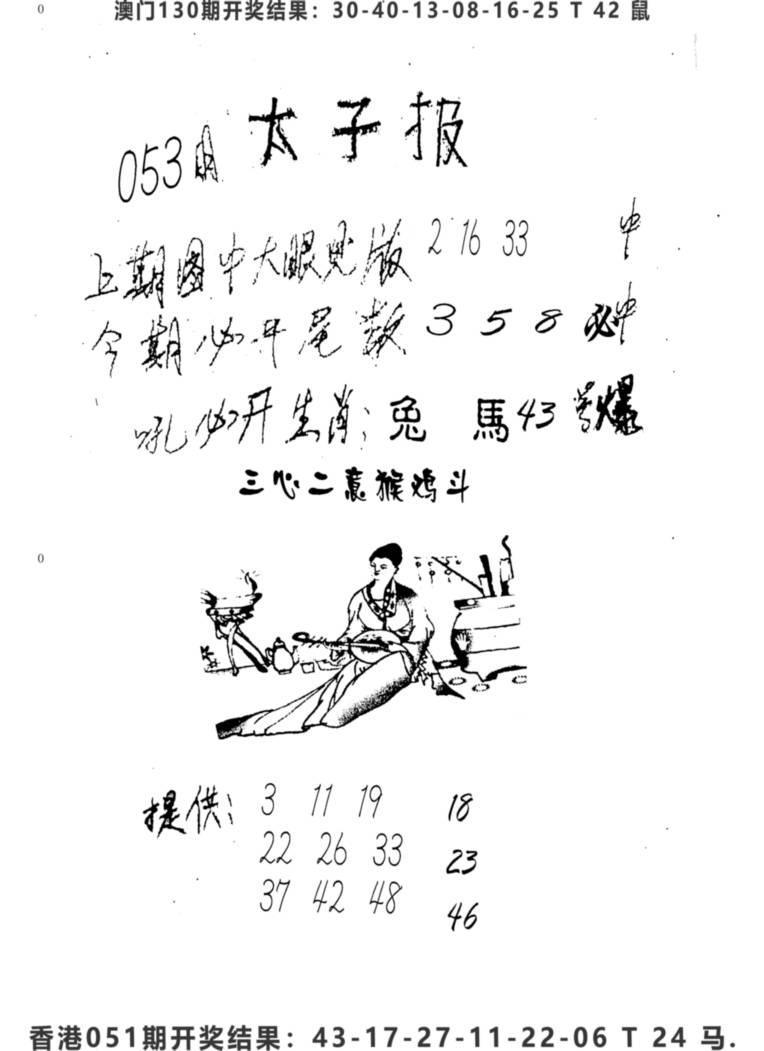 0
澳门130期开奖结果：30-40-13-08-16-25 T 42 鼠
053期 太子报
上期图中大眼见版 2 16 33 中
今期必开尾数 3 5 8 必中
吼必开生肖：兔 馬 43 爆
三心二意猴鸡斗
0
提供：3 11 19 18
22 26 33 23
37 42 48 46
香港051期开奖结果：43-17-27-11-22-06 T 24 马.